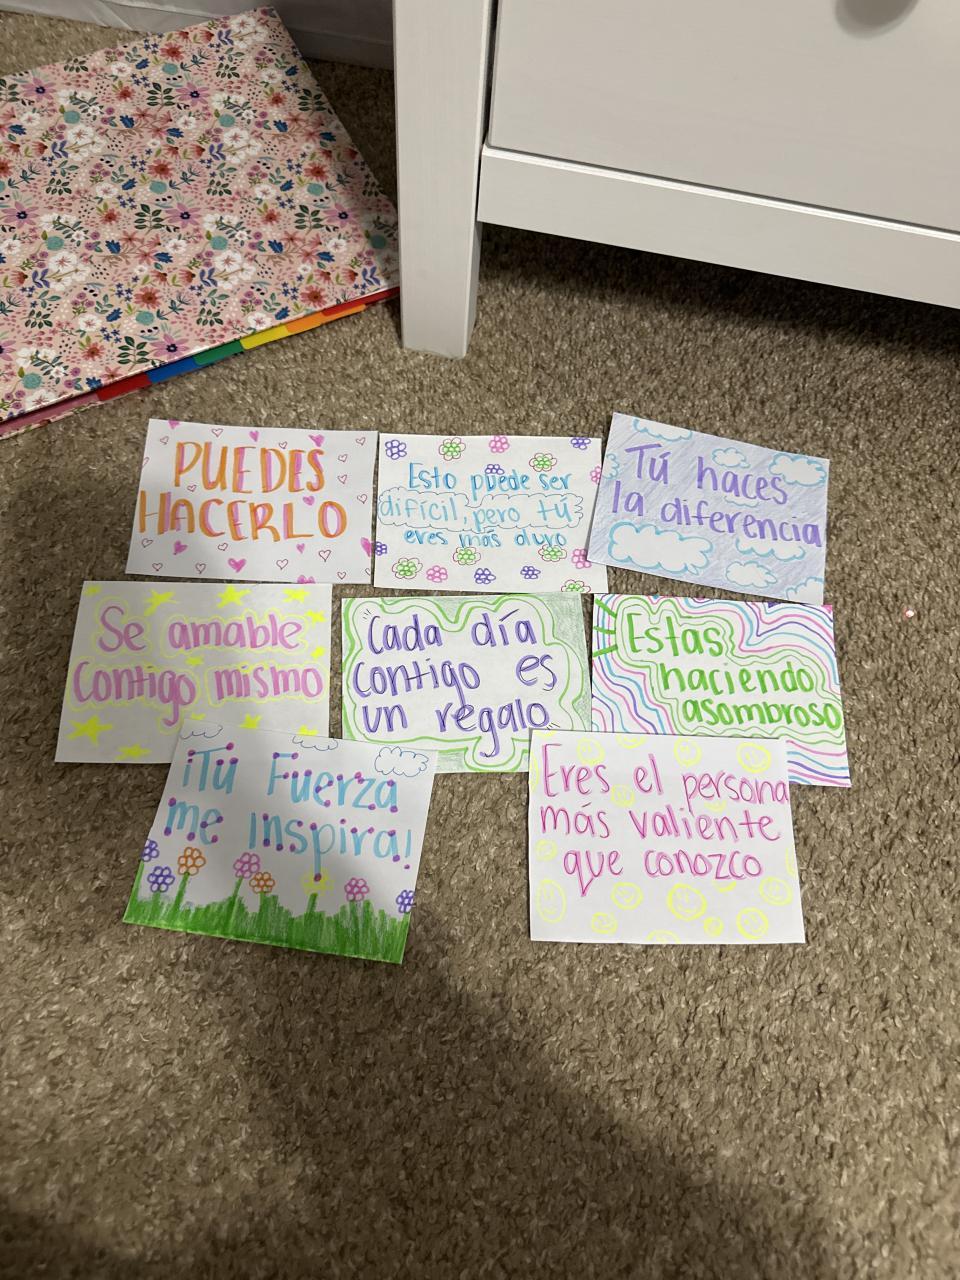 PUEDES
HACERLO
Esto puede ser
difícil, pero tú
eres más duro
Tú haces
la diferencia
Se amable
contigo mismo
Cada día
contigo es
un regalo
Estas
haciendo
asombroso
¡Tu Fuerza
me inspira!
Eres el persona
más valiente
que conozco